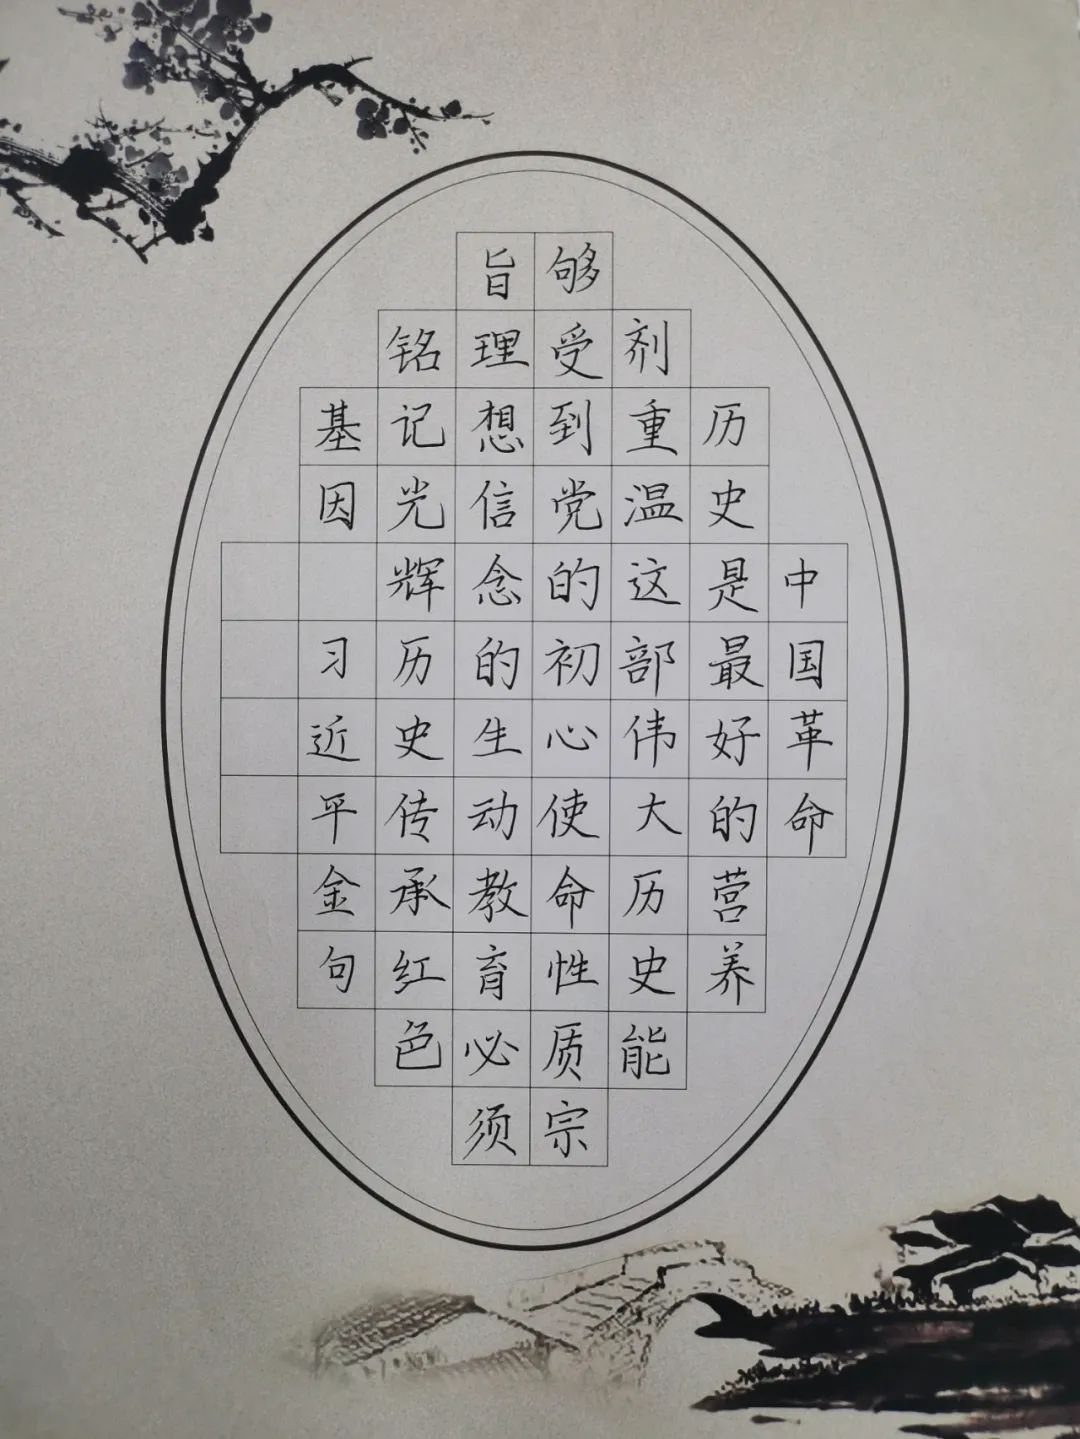 中国革命
历史是最好的营养
剂重温这部伟大历史能
够受到党的初心使命性质宗
旨理想信念的生动教育必须
铭记光辉历史传承红色
基因 习近平金句